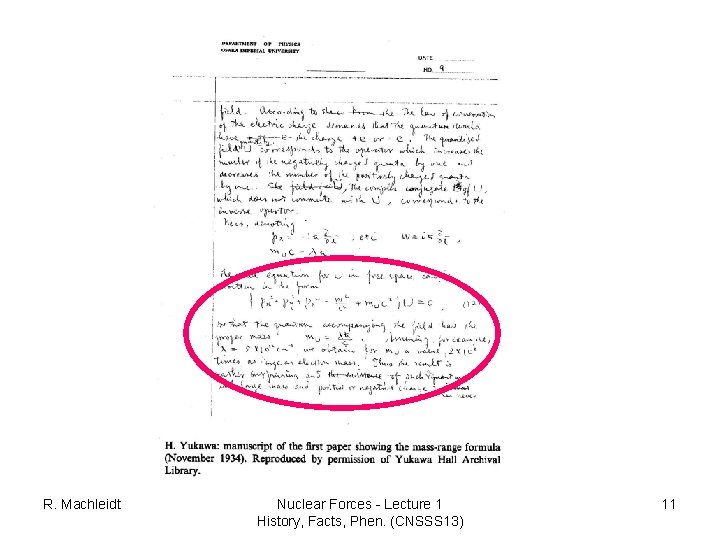 DEPARTMENT OF PHYSICS
OSAKA IMPERIAL UNIVERSITY
DATE
NO. 9
field. According to the law of conservation
of the electric charge demands that the quantum should
have the charge +e or -e. The quantized
field U corresponds to the operator which increases the
number of the negatively charged quanta by one and
decreases the number of the positively charged quanta
by one. The complex conjugate
which does not commute with U, corresponds to the
inverse operator.
Next, denoting
, etc
equation for U in free space
written in the form
so that the quantum accompanying the field has the
proper mass . Assuming, for example,
we obtain for a value
times as large as electron mass. Thus the result is
rather surprising and the existence of such quantum
with large mass and positive or negative charge
H. Yukawa: manuscript of the first paper showing the mass-range formula
(November 1934). Reproduced by permission of Yukawa Hall Archival
Library.
R. Machleidt
Nuclear Forces - Lecture 1
History, Facts, Phen. (CNSSS13)
11